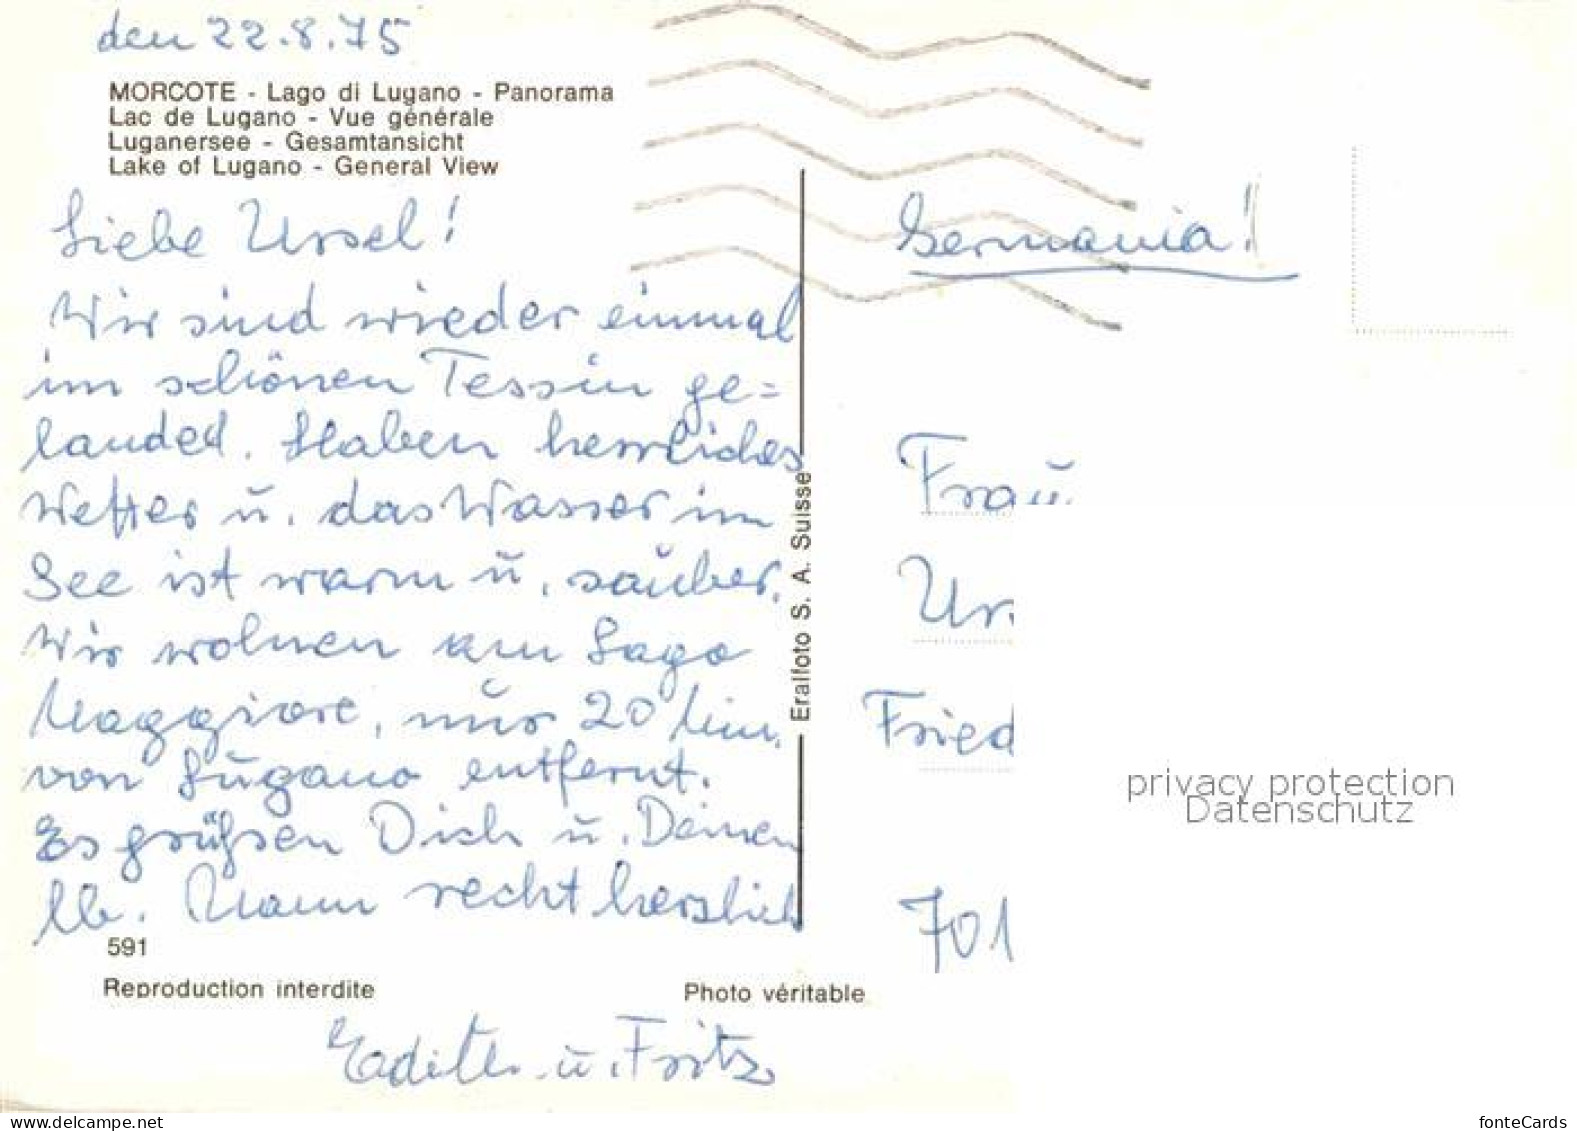 den 22.8.75
MORCOTE - Lago di Lugano - Panorama
Lac de Lugano - Vue générale
Luganersee - Gesamtansicht
Lake of Lugano - General View
Liebe Ursel!
Wir sind wieder einmal
im schönen Tessin ge=
landed. Haben herrliches
Wetter u. das Wasser im
See ist warm u. sauber.
Wir wohnen am Lago
Maggiore, nur 20 Min.
von Lugano entfernt.
Es grüßen Dich u. Deinen
lb. Mann recht herzlich
591
Reproduction interdite
Photo véritable
Edith u. Fritz
Eralfoto S. A. Suisse
Germania!
Frau
Urs
Fried
701
privacy protection
Datenschutz
www.delcampe.net
fonteCards